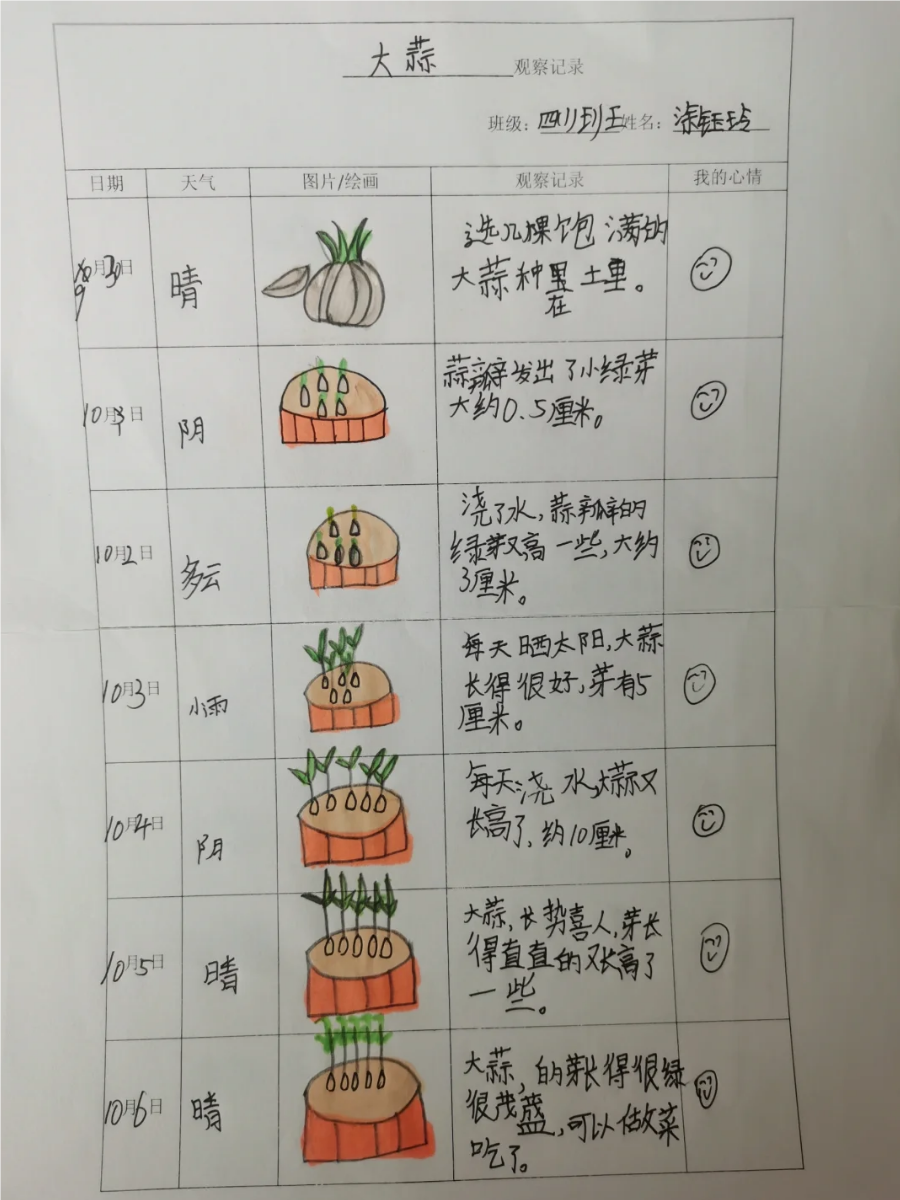 大蒜 观察记录
班级：四(1)班 姓名：涂钰玲
日期 天气 图片/绘画 观察记录 我的心情
9月30日 晴 选几棵饱满的
大蒜种里土里。
在
10月1日 阴 蒜瓣发出了小绿芽
大约0.5厘米。
10月2日 多云 浇了水，蒜瓣的
绿芽又高一些，大约
3厘米。
10月3日 小雨 每天晒太阳，大蒜
长得很好，芽有5
厘米。
10月4日 阴 每天浇水，大蒜又
长高了，约10厘米。
10月5日 晴 大蒜，长势喜人，芽长
得直直的又长高了
一些。
10月6日 晴 大蒜，的芽长得很绿
很茂盛，可以做菜
吃了。